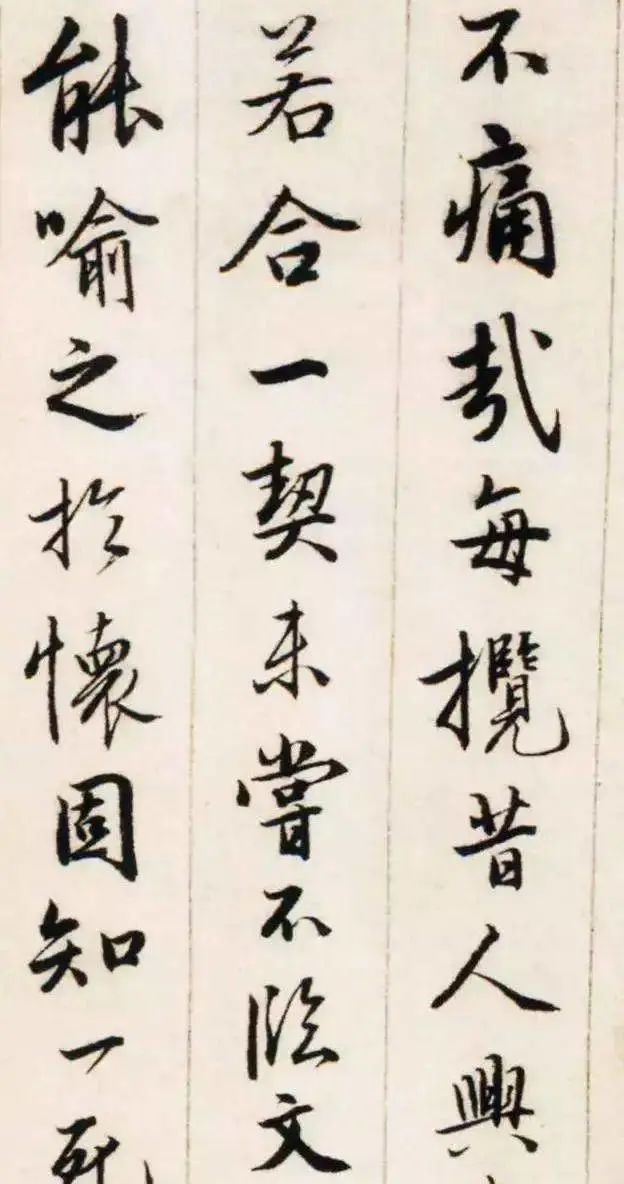 不痛哉每攬昔人興
若合一契未嘗不臨文
能喻之於懷固知一死